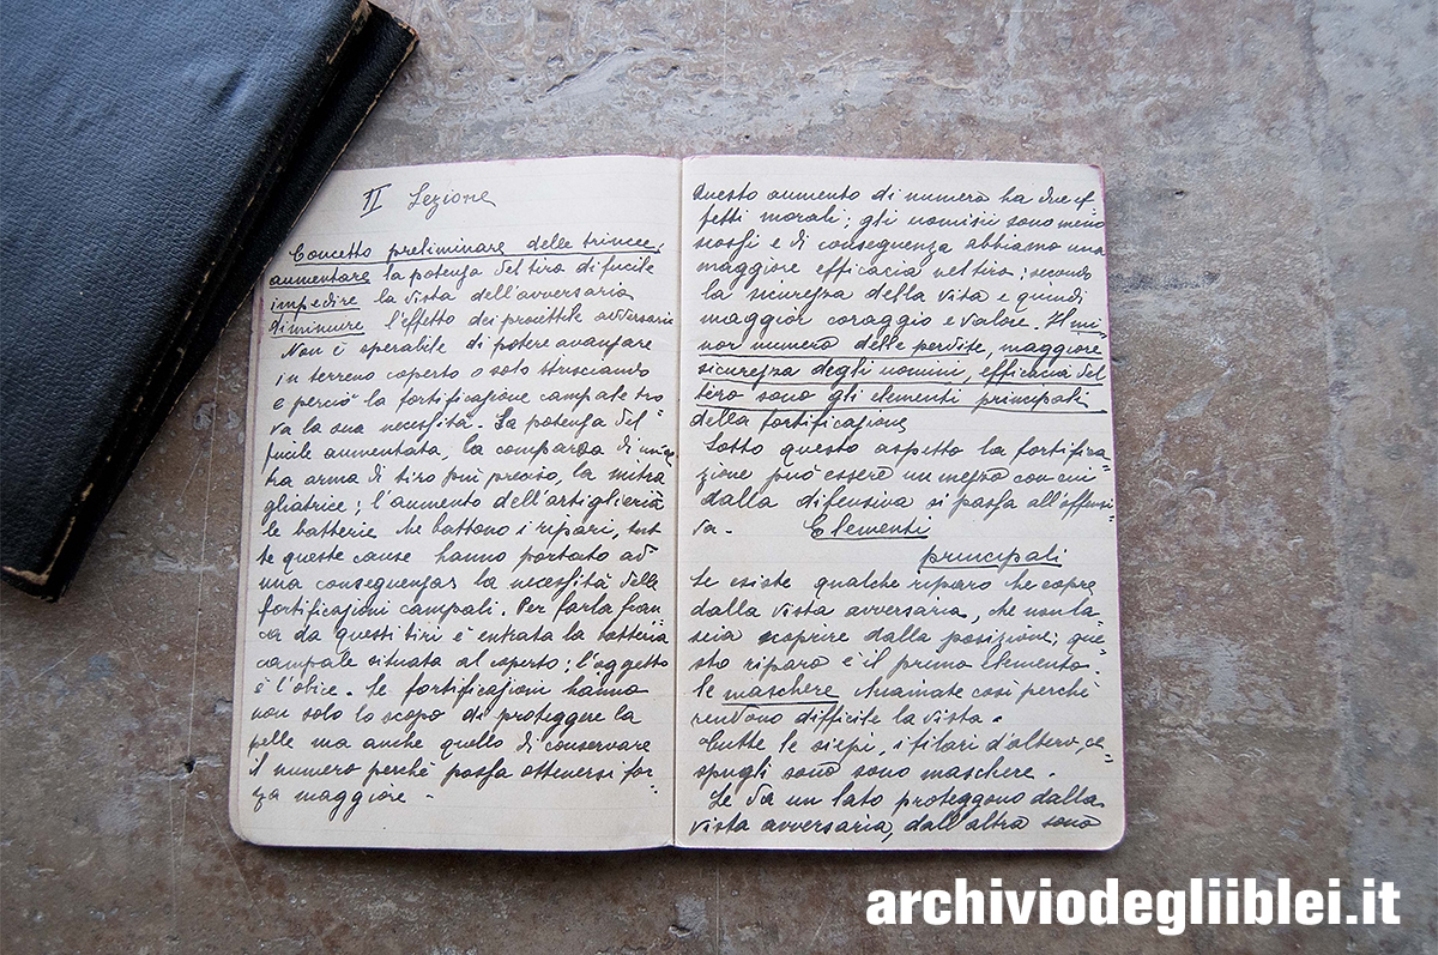 II Lezione
Concetto preliminare delle trincee,
aumentare la potenza del tiro di fucile
impedire la vista dell'avversario
diminuire l'effetto dei proiettile avversario
Non è sperabile di potere avanzare
in terreno coperto o solo strisciando
e perciò la fortificazione campale tro
va la sua necessità. La potenza del
fucile aumentata, la comparsa di un'al
tra arma di tiro più preciso, la mitra
gliatrice; l'aumento dell'artiglieria
le batterie che battono i ripari, tut
te queste cause hanno portato ad
una conseguenza, la necessità delle
fortificazioni campali. Per farla fran
ca da questi tiri è entrata la batteria
campale situata al coperto; l'oggetto
è l'obice. Le fortificazioni hanno
non solo lo scopo di proteggere la
pelle ma anche quello di conservare
il numero perchè possa ottenersi for-
za maggiore -
Questo aumento di numero ha due ef-
fetti morali; gli uomini sono meno
scossi e di conseguenza abbiamo una
maggiore efficacia nel tiro; secondo
la sicurezza della vita e quindi
maggior coraggio e valore. Il mi-
nor numero delle perdite, maggiore
sicurezza degli uomini, efficacia del
tiro sono gli elementi principali
della fortificazione
Sotto questo aspetto la fortifica=
zione può essere un mezzo con cui
dalla difensiva si passa all'offensi-
va - Elementi
principali
Se esiste qualche riparo che copre
dalla vista avversaria, che non la
scia scoprire dalla posizione; que=
sto riparo è il primo elemento.
Le maschere chiamate così perchè
rendono difficile la vista.
Tutte le siepi, i filari d'albero, ce=
spugli sono sono maschere.
Se da un lato proteggono dalla
vista avversaria, dall'altro sono
archiviodegliiblei.it